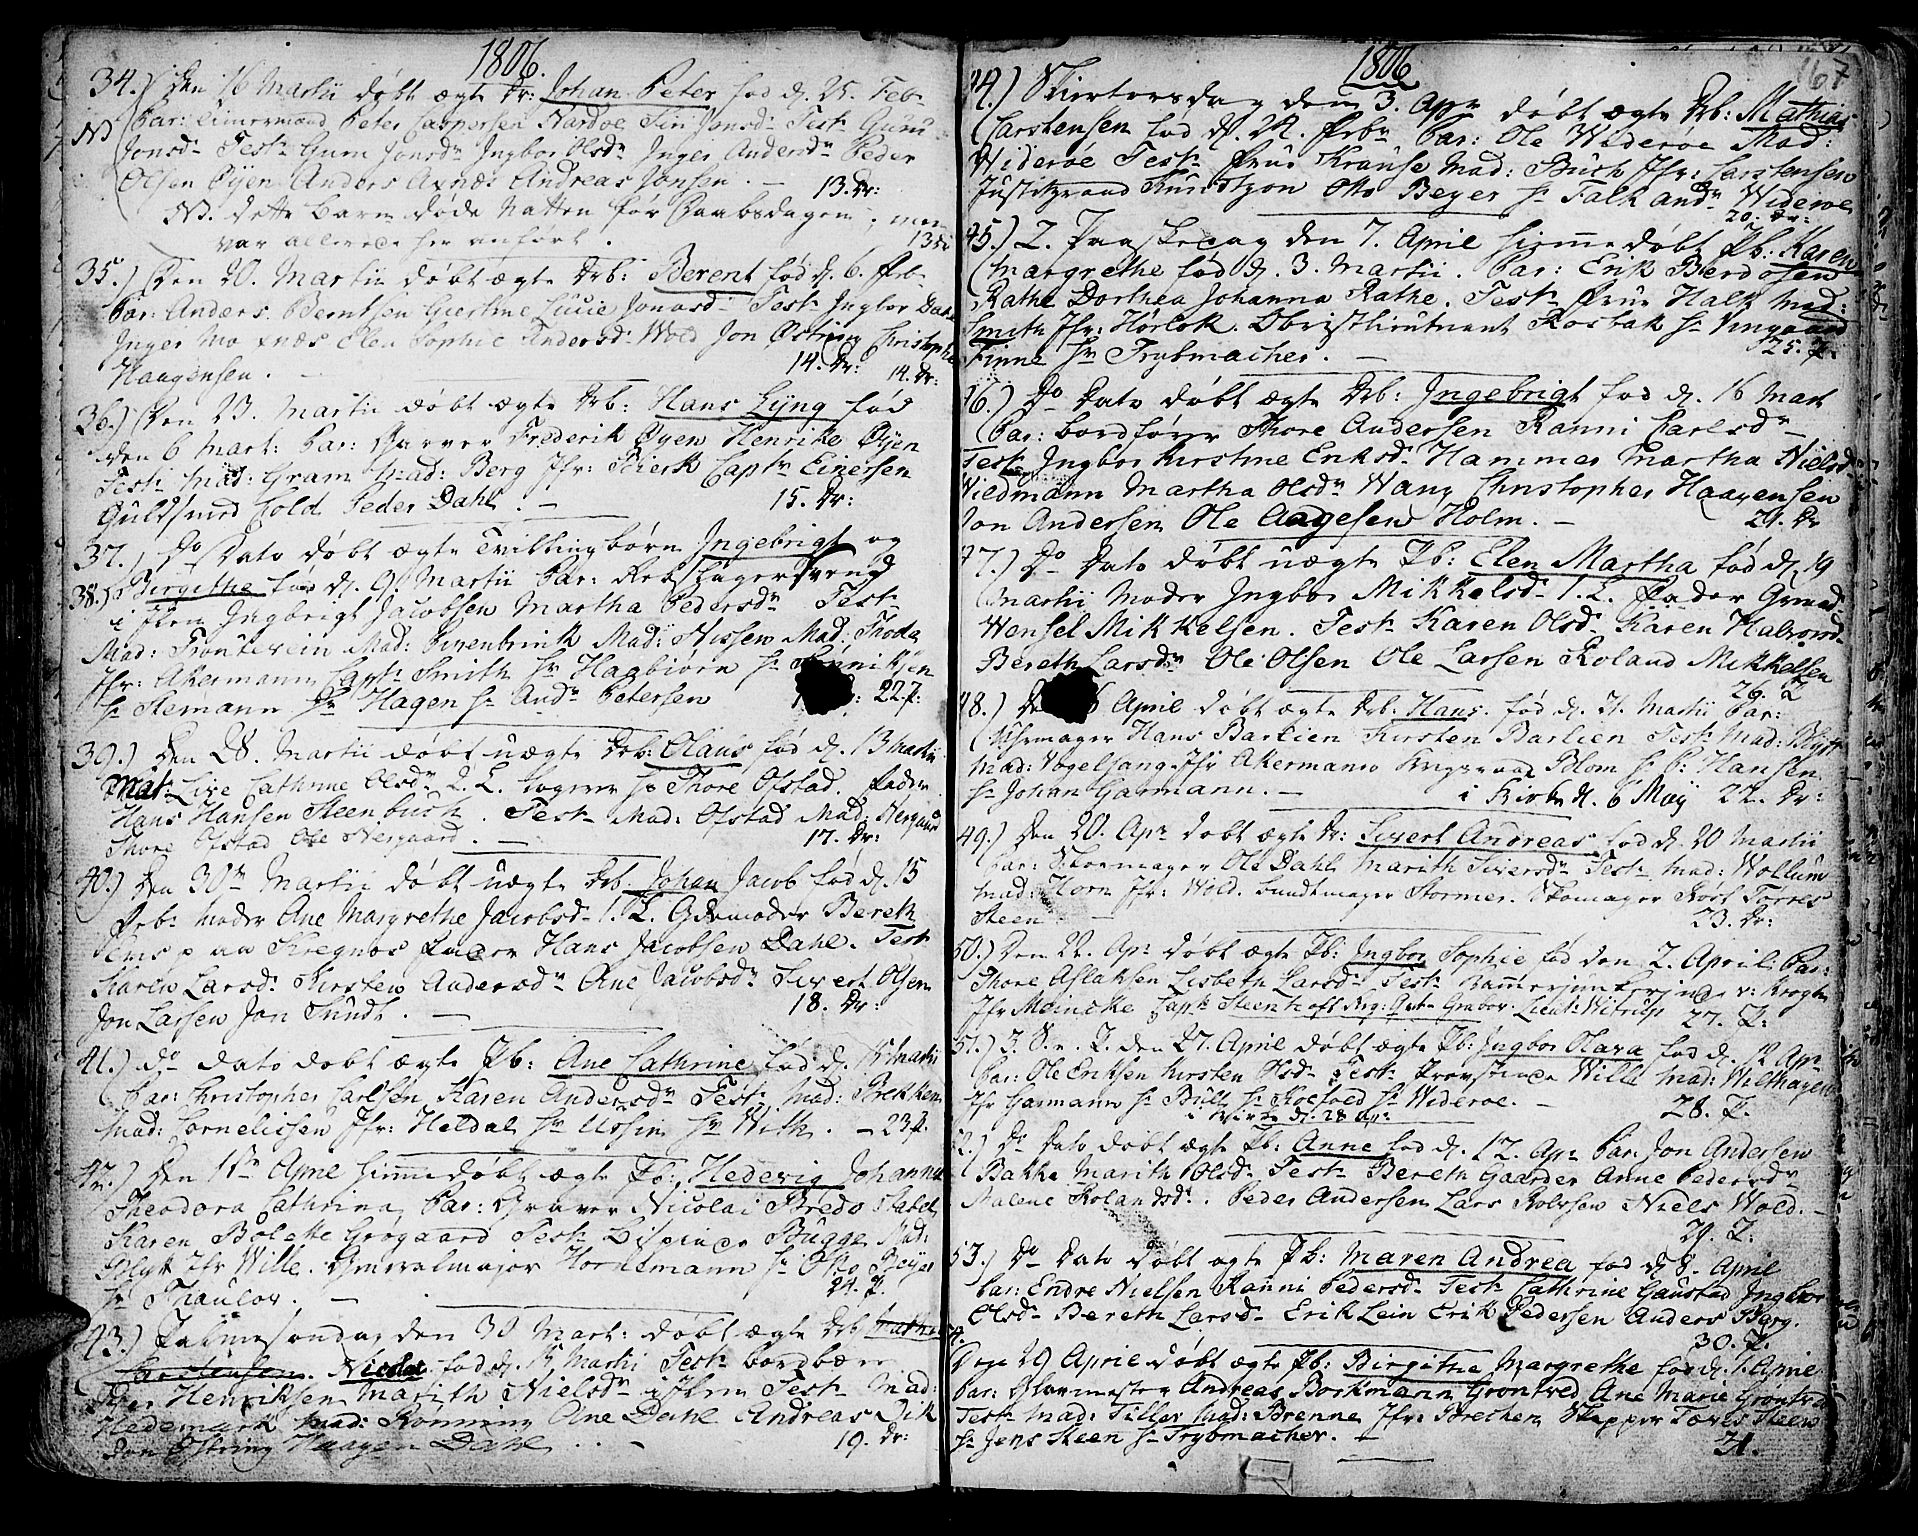 1806.
34.) Den 16 Martii døbt ægte Dr: Johan Peter fød d. 25. Feb.
Par: Timermand Peter Caspersen Nardoe Siri Jonsd. Test. Guru
NB Jonsd. Test. Guru Jonsd. Ingbor Olsd. Inger Andersd. Peder
Olsen Øyen Anders Axnæs Andreas Jonsen. — 13. Dr:
NB. dette Barn døde Natten før Daabsdagen, men
var allerede her anført. 13.
35.) Den 20. Martii døbt ægte Drb: Berent fød d. 6. Feb.
Par: Anders Berntsen Giertine Lucie Jonasd. Test. Ingbor Dahl
Inger Moxnæs Elen Sophie Andersd. Wold Jon Østring Christopher
Haagensen. 14. Dr: 14. Dr:
36.) Den 23. Martii døbt ægte Drb: Hans Lyng fød
den 6 Mart: Par: Garver Frederik Øyen Henrike Øyen
Test. Mad: Gram Mad: Berg Jfr: Schierk Capt. Einersen
Guldsmed Cold Peder Dahl. — 15. Dr:
37.) Do Dato døbt ægte Tvillingbørn Ingebrigt og
38.) Birgithe fød d. 9. Martii Par: Rebslagersvend
Ingebrigt Jacobsen Martha Pedersd. Test.
Mad: Tronterein Mad: Pivenbrink Mad: Nissen Mad: Thode
Jfr: Akermann Capt. Smith Hr Hagbiørn Hr
Hr Hemann Hr Hagen Hr And. Petersen 22 P.
39.) Den 28. Martii døbt uægte Drb: Olaus fød d. 13 Martii
Mat: Live Cathrine Olsd. 2. L. Logerer hos Thore Ofstad. Fader
Hans Hansen Steenbuch. Test. Mad: Ofstad Mad: Nergaard
Thore Ofstad Ole Nergaard. — 17. Dr:
40.) Den 30te Martii døbt uægte Drb. Johan Jacob fød d. 15
Feb. Moder Ane Margrethe Jacobsd. 1. L. Gdemoder Bereth
Jens p aa Kregnes Fader Hans Jacobsen Dahl. Test.
Karen Larsd. Kirsten Andersd. Ane Jacobsd. Sivert Olsen
Jon Larsen Jon Sundt. — 18. Dr:
41.) do dato døbt ægte Pb: Ane Cathrine fød d. 15 Martii
Par: Christopher Carlsen Karen Andersd. Test. Mad: Brekken
Mad: Cornelissen Jfr: Heldal Hr Ussin Hr With. — 23 P.
42.) Den 1ste April hiemmedøbt ægte Pb: Hedevig Johanna
Theodora Cathrina Par: Graver Nicolai Bredo Stabel
Karen Bolette Grøgaard Test. Bispinde Bugge Mad:
Blyt Jfr Wille. Generalmajor Hornemann Hr Otto Beyer
Hr Thaulov. — 24. P.
43.) Palmesøndag den 30 Mart: døbt ægte Drb Mathias
Carstensen. Nicolai fød d. 15 Martii Test. bordbær
Peer Henriksen Marith Nielsd. Test. Mad:
Hedemark Mad: Rønning Ane Dahl Andreas Dik
Jon Østring Haagen Dahl. 19. Dr:
1806 167
44.) Skiertorsdag den 3. Apr. døbt ægte Drb: Mathias
Carstensen fød d. 21. Feb. Par: Ole Widerøe Mad:
Widerøe Test. Frue Krause Mad: Buch Jfr: Carstensen
Justitsraad Knudtzon Otto Beyer Hr Falk And. Widerøe
20. Dr:
45.) 2. Paaskedag den 7. April hiemmedøbt Pb: Karen
Margrethe fød d. 3. Martii. Par: Erik Berdosen
Rathe Dorthea Johanna Rathe. Test. Frue Halk Mad:
Smith Jfr: Hørlok. Obristlieutnant Rosbak Hr Vingaard
Finne Hr Trybmacher. — 25. P.
46.) Do Dato døbt ægte Drb: Ingebrigt fød d. 16 Mart
Par: bordfører Thore Andersen Ranni Carlsd.
Test. Ingbor Kirstine Eriksd. Hammer Martha Nielsd.
Wiedmann Martha Olsd. Wang Christopher Haagensen
Jon Andersen Ole Aagesen Holm. — 21. Dr
47.) Do Dato døbt uægte Pb: Elen Martha fød d. 19
Martii Moder Ingbor Mikkelsd. 1. L. Fader Grend.
Wensel Mikkelsen. Test. Karen Olsd. Karen Halvorsd.
Bereth Larsd. Ole Olsen Ole Larsen Roland Mikkelsen
26. P.
48.) Den 6 April døbt ægte Drb. Hans. fød d. 31. Martii Par:
Uhrmager Hans Barlien Kirsten Barlien Test. Mad: Blytt
Mad: Vogelsang Jfr Akermann Krigsraad Blom Hr P: Hansen
Hr Johan Garmann. — i Kirke d. 6 May 22. Dr:
49.) Den 20. Apr. døbt ægte Dr: Sivert Andreas fød d. 20 Martii
Par: Skomager Ole Dahl Marith Siversd. Test. Mad: Wollum
Mad: Horn Jfr: Wold. bundtmager Stormer. Skomager Rost Torres
Steen. — 23. Dr:
50.) Den 22. Apr. døbt ægte Pb: Ingbor Sophie fød den 2. April. Par:
Thore Aslaksen Lisbeth Larsd. Test. Kammerjunkerinde v: Krogh
Jfr Meincke Capt. Steenhoff Reg: Qvt. Grabov Lieut: Witrup
27. P:
51.) 3. S. e. P. den 27. April døbt ægte Pb: Ingbor Olava fød d. 12 Apr.
Par: Ole Eriksen Kirsten Olsd. Test. Provstinde Wille Mad: Wilthagen
Jfr Garmann Hr Bull Hr Koefoed Hr Widerøe. — 28. P.
i Kirke d. 28 Apr:
52.) Do Dato døbt ægte Pb: Anne fød d. 12. Apr. Par: Jon Andersen
Bakke Marith Olsd. Test. Bereth Gaarder Anne Pedersd.
Malene Rolandsd. Peder Andersen Lars Rolvsen Niels Wold. —
29. P:
53.) Do Dato døbt ægte Pb: Maren Andrea fød d. 8. April
Par: Endre Nielsen Ranni Pedersd. Test. Cathrine Gaustad Ingbor
Olsd. Bereth Larsd. Erik Lein Erik Pedersen Anders Berg.
30. P.
54. Den 29 April døbt ægte Pb: Birgithe Margrethe fød d. 1. April
Par: Glarmester Andreas Borkmann Grøntved Ane Marie Grøntved
Test. Mad: Tiller Mad: Brenne Jfr: Brechen Skipper Torris Steen
Hr Jens Steen Hr Trybmacher. — 31.